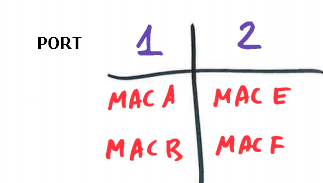 PORT 1 2
MAC A MAC E
MAC B MAC F